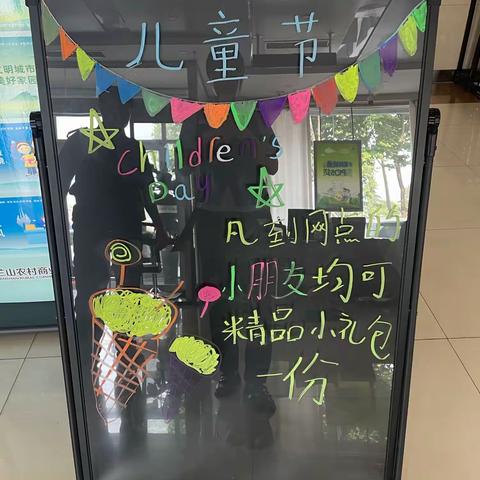 儿童节
Children's
Day
凡到网点的
小朋友均可
精品小礼包
一份
文明城市
美好家园
兰山农村商业